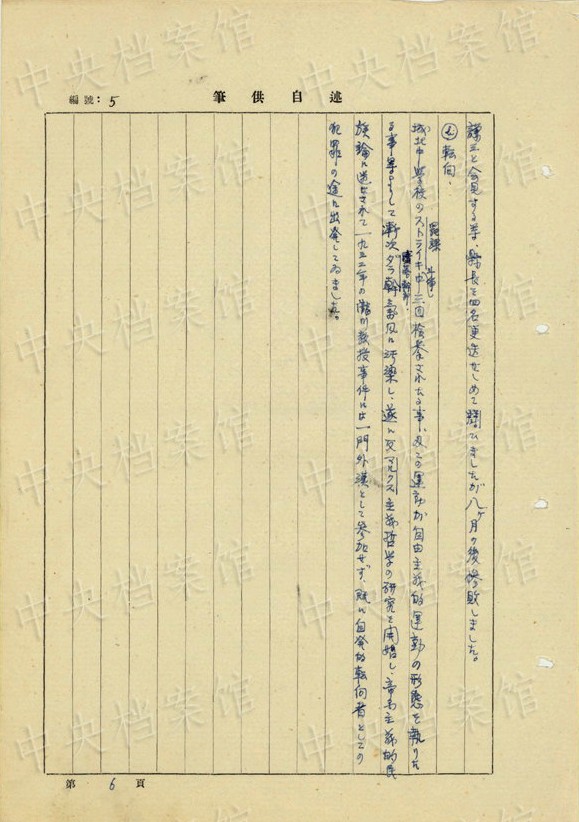 編號：5
筆供自述
議士と会見する等、县長を四名更迭せしめて闘ひましたが八ヶ月の後惨敗しました。
転向、
城北中学校のストライキ中三回検挙されたる事、及この運動が自由主義的運動の形態を執りた
る事等よりして漸次ダラ幹 風に汚染し、遂に反マルクス主義哲学の研究を開始し、帝国主義的民
族論に迄 されて一九三二年の瀧川教授事件には一門外漢として参加せず、既に自発的転向者としての
犯罪の途に出発してゐました。
第 6 頁
中央档案馆